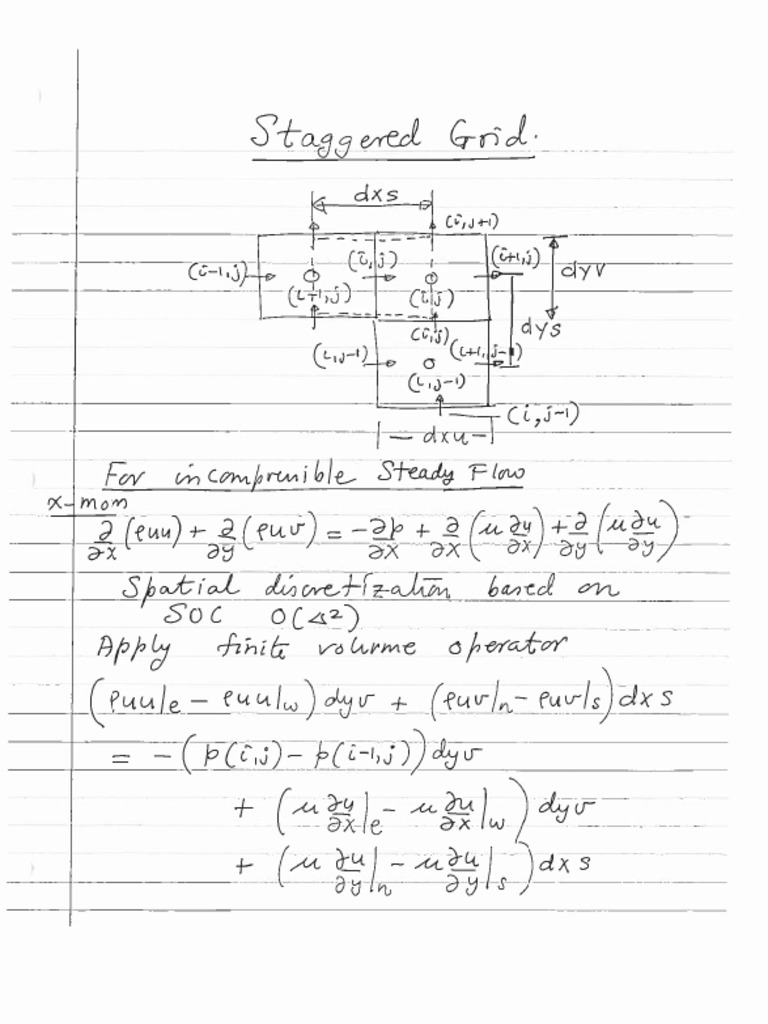 Staggered Grid.
dxs
(i,j+1)
(i-1,j) (i,j) (i+1,j)
dyv
(i-1,j) (i,j)
(i,j) dys
(i,j-1) (i+1,j-1)
(i,j-1)
(i,j-1)
|— dxu -|
For incompressible Steady Flow
x-mom
∂/∂x (ρuu) + ∂/∂y (ρuv) = -∂p/∂x + ∂/∂x (μ ∂u/∂x) + ∂/∂y (μ ∂u/∂y)
Spatial discretization based on
SOC O(Δ²)
Apply finite volume operator
(ρuu|e - ρuu|w) dyv + (ρuv|n - ρuv|s) dxs
= -(p(i,j) - p(i-1,j)) dyv
+ (μ ∂u/∂x|e - μ ∂u/∂x|w) dyv
+ (μ ∂u/∂y|n - μ ∂u/∂y|s) dxs